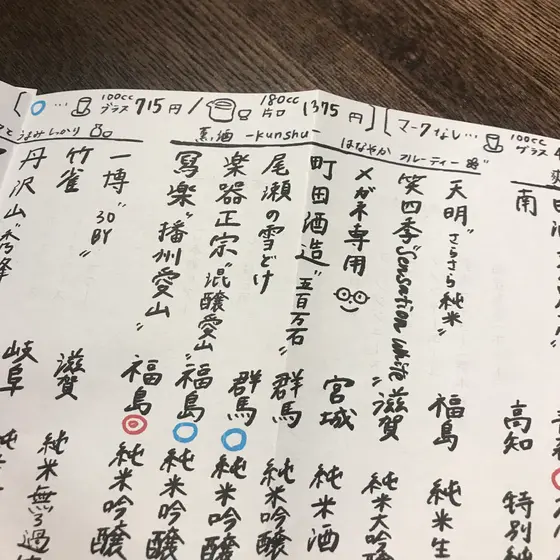 ○…100cc グラス 715円 / 180cc 片口 1375円
マークなし…100cc グラス
うまみしっかり
薫酒 -Kunshu-
はなやか フルーティー
南 高知 特別純
天明"さらさら純米" 福島 純米生
笑四季"Sensation white" 滋賀 純米大吟
メガネ専用 宮城 純米酒
町田酒造"五百万石" 群馬 純米吟醸
尾瀬の雪どけ 群馬 純米吟醸
楽器正宗"混醸愛山" 福島 純米吟醸
冩楽"播州愛山" 福島 純米吟醸
一博"30BY" 滋賀 純米無ろ過
竹雀 岐阜
丹沢山"秀峰"